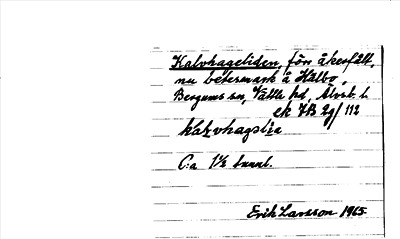 Kalvhageliden, förr åkerfält,
nu betesmark å Hälbo,
Bergums sn, Vättle hd, Älvsb. l.
ek 7B 2g/112
kalvhagslia
C:a 1½ tunnl.
Erik Larsson 1965